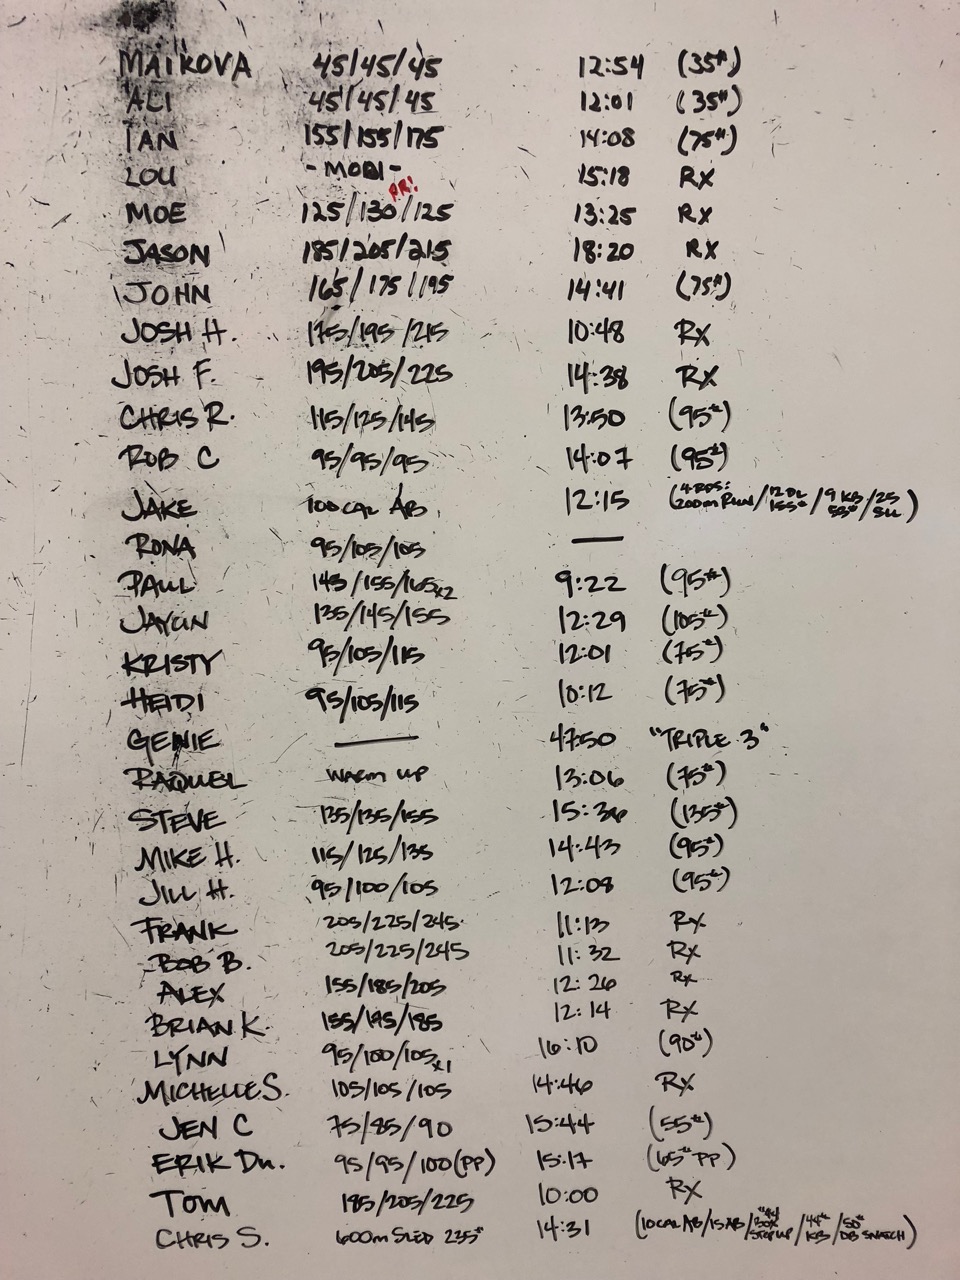 MAIKOVA 45/45/45 12:54 (35#)
ALI 45/45/45 12:01 (35#)
IAN 155/155/175 14:08 (75#)
LOU - MOBI - 15:18 RX
PR!
MOE 125/130/125 13:25 RX
JASON 185/205/215 18:20 RX
JOHN 165/175/195 14:41 (75#)
JOSH H. 175/195/215 10:48 RX
JOSH F. 195/205/225 14:38 RX
CHRIS R. 115/125/145 13:50 (95#)
ROB C 95/95/95 14:07 (95#)
JAKE 100 CAL AB 12:15 (4 RDS: 200m RUN/12 DL 155#/9 KB 53#/25 SU)
RONA 95/105/105 —
PAUL 145/155/165x2 9:22 (95#)
JAYLIN 135/145/155 12:29 (105#)
KRISTY 95/105/115 12:01 (75#)
HEIDI 95/105/115 10:12 (75#)
GENIE — 47:50 "TRIPLE 3"
RAQUEL WARM UP 13:06 (75#)
STEVE 135/135/155 15:36 (135#)
MIKE H. 115/125/135 14:43 (95#)
JILL H. 95/100/105 12:08 (95#)
FRANK 205/225/245 11:13 RX
BOB B. 205/225/245 11:32 RX
ALEX 155/185/205 12:26 RX
BRIAN K. 155/175/185 12:14 RX
LYNN 95/100/105x1 16:10 (90#)
MICHELLE S. 105/105/105 14:46 RX
JEN C 75/85/90 15:44 (55#)
ERIK DU. 95/95/100(PP) 15:17 (65# PP)
TOM 185/205/225 10:00 RX
CHRIS S. 600m SLED 235# 14:31 (10 CAL AB/15 AB/ BOX STEP UP/44# KB/50# DB SNATCH)